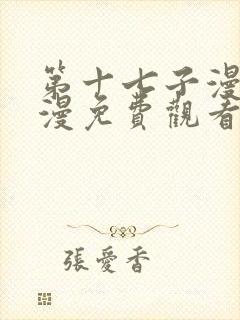 第十七子漫
漫免費觀看
張愛香